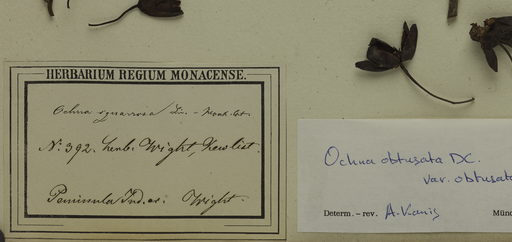 HERBARIUM REGIUM MONACENSE.
Ochna squarrosa Lin.
No. 392. herb. Wight, Kew list.
Peninsula Ind. or. Wight.
Ochna obtusata DC.
var. obtusata
Determ. – rev. A. Kanis
Mün